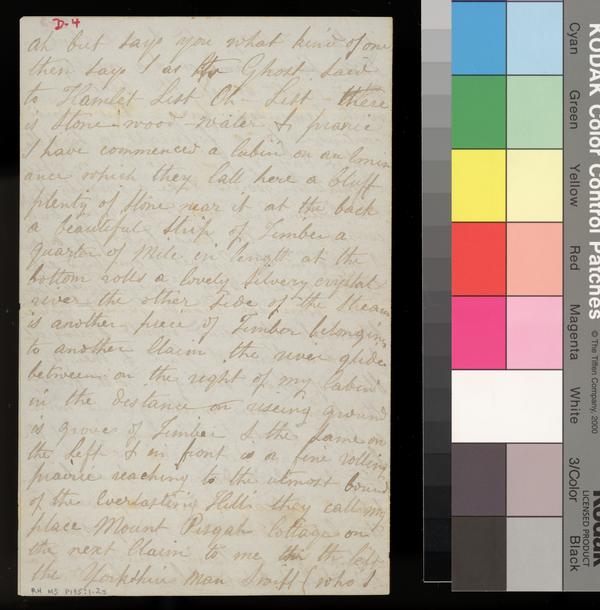 D-4
ah but says you what kind of one
then says I as the Ghost said
to Hamlet List Oh - List - there
is Stone - wood - water & prarie
I have commenced a Cabin on an Emin
ance which they Call here a bluff
plenty of Stone near it at the back
a beautiful Strip of Timber a
quarter of Mile in length at the
bottom rolls a lovely Silvery crystal
river the other Side of the Stream
is another piece of Timber belonging
to another Claim the river glides
between on the right of my Cabin
in the distance on riseing ground
is grove of Timber & the Same on
the Left & in front is a fine rolling
prairie reaching to the utmost bound
of the Everlasting Hills they call my
place Mount Pisgah Cottage on
the next Claim to me on the left
the Yorkshire man Swift (who I
RH MS P135:1.23
KODAK Color Control Patches
© The Tiffen Company, 2000
Kodak
LICENSED PRODUCT
Cyan
Green
Yellow
Red
Magenta
White
3/Color
Black